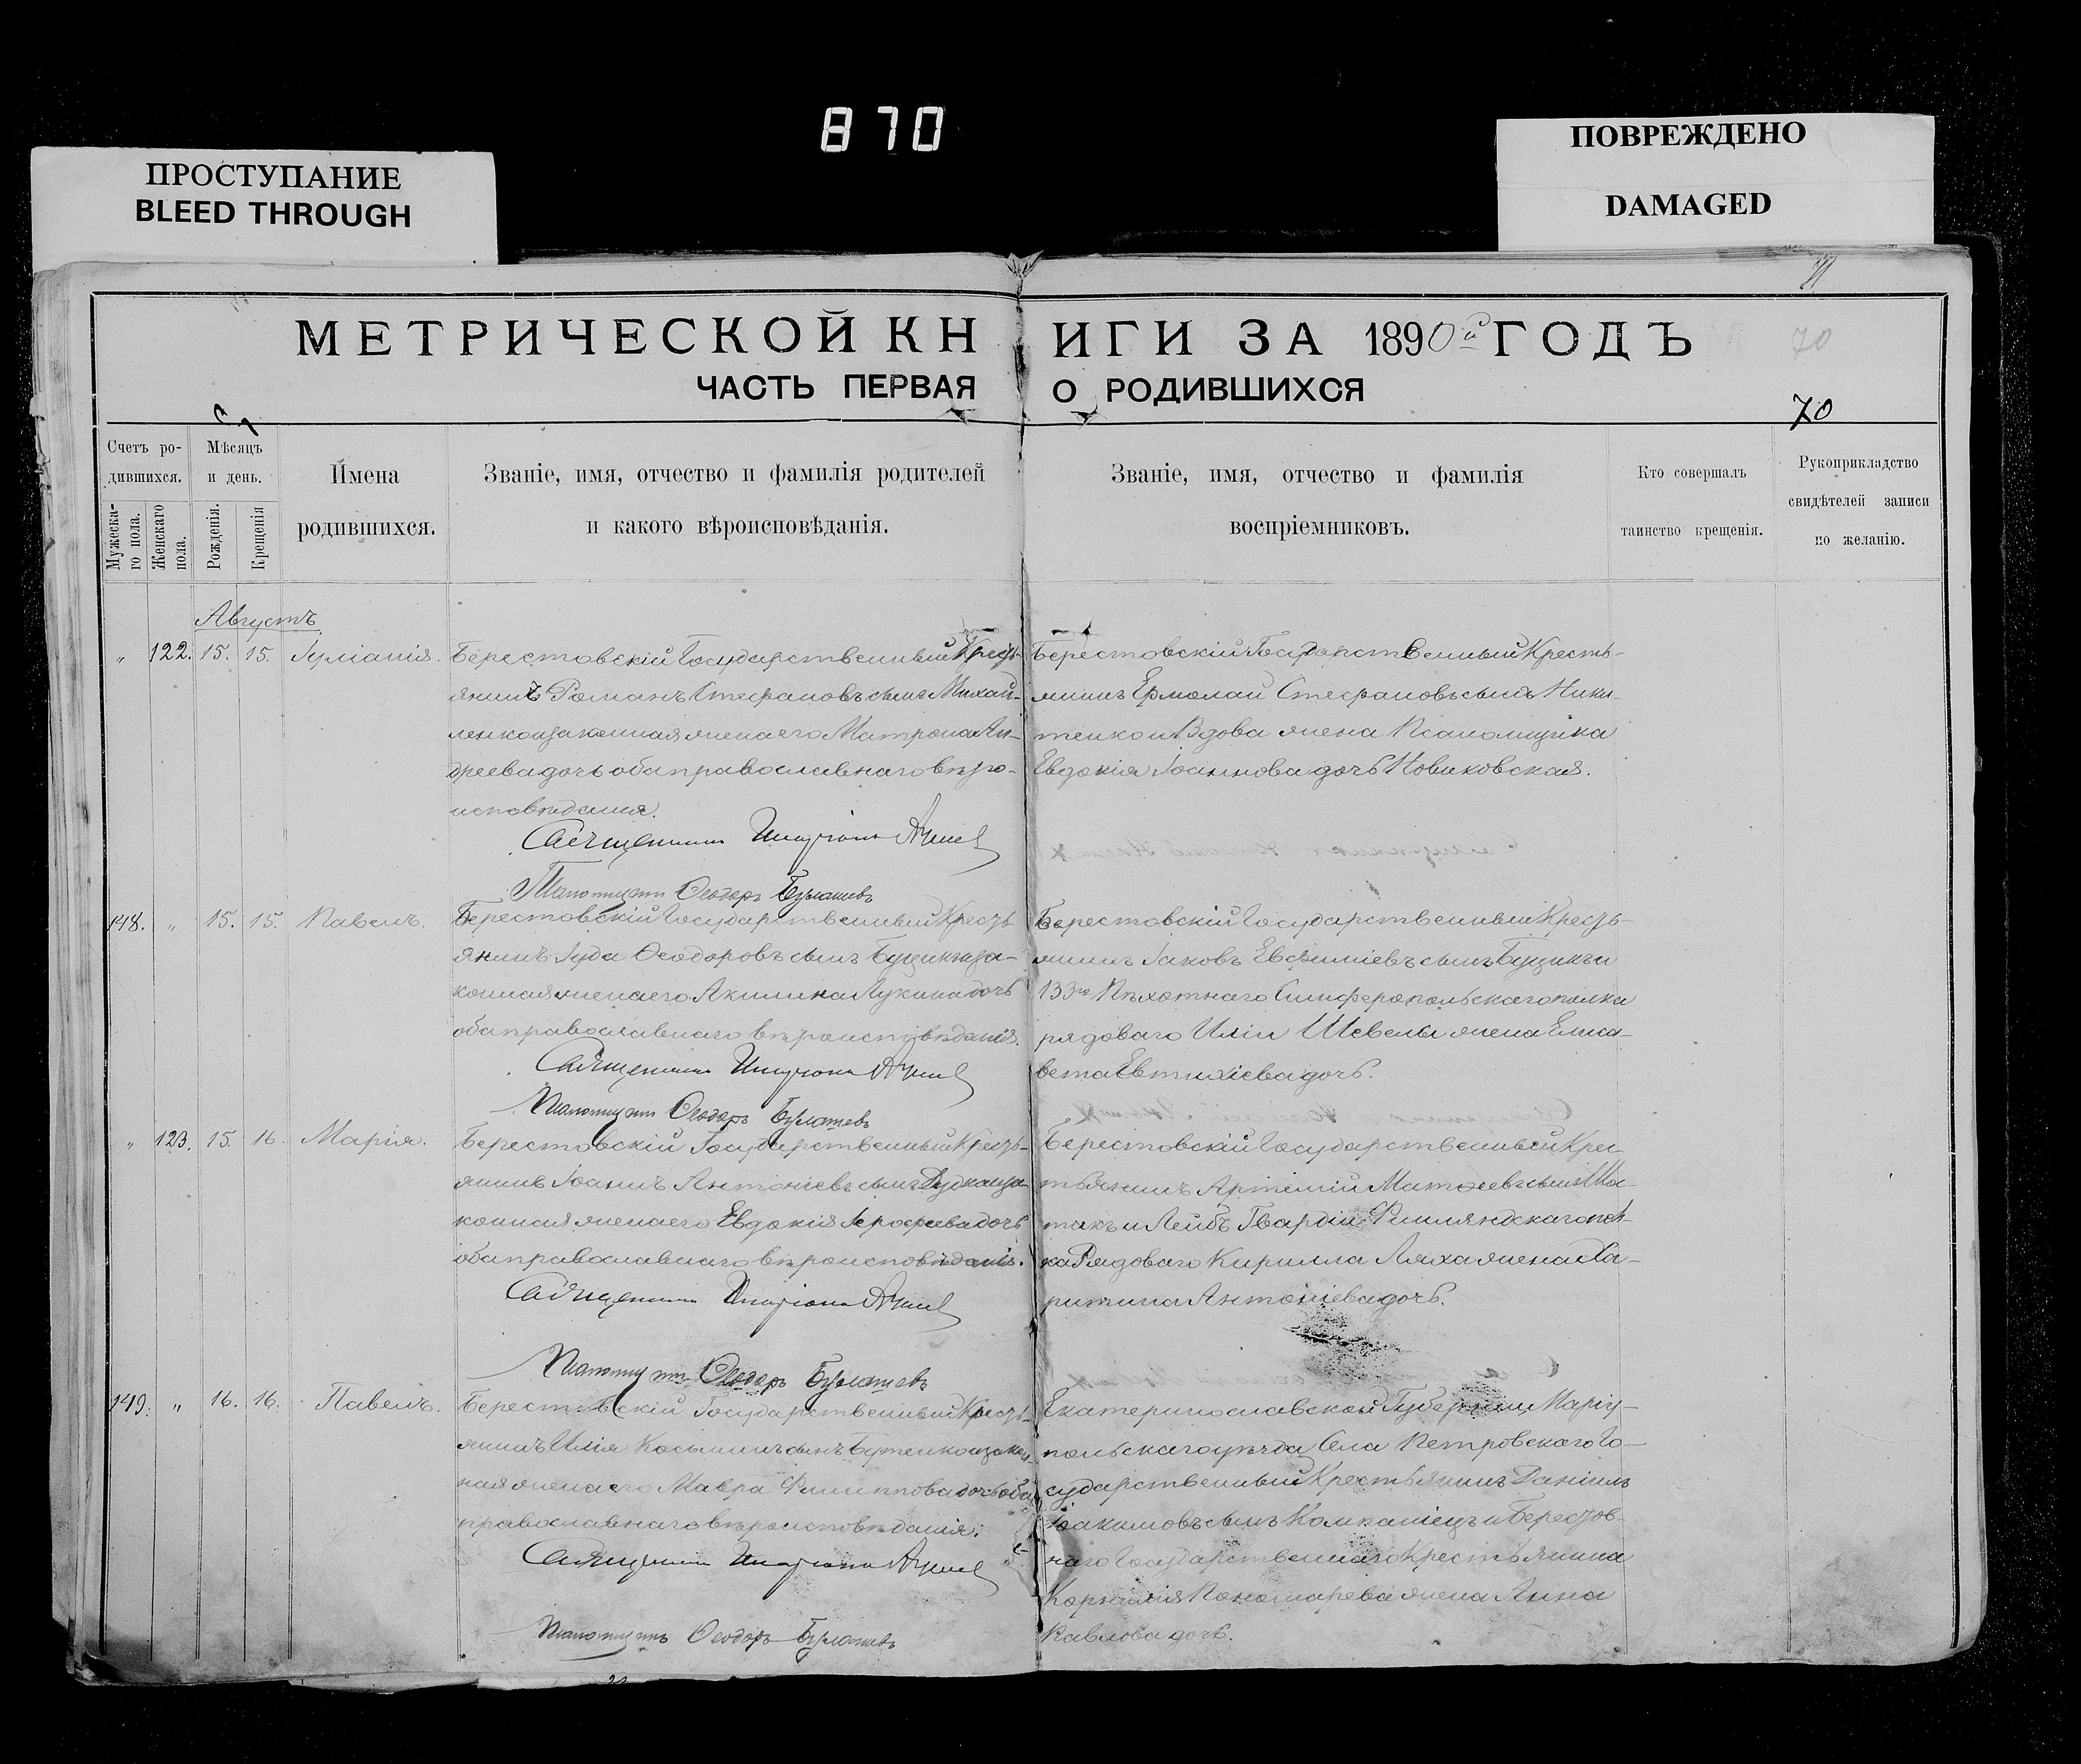 870
ПРОСТУПАНИЕ
BLEED THROUGH
ПОВРЕЖДЕНО
DAMAGED
71
МЕТРИЧЕСКОЙ КНИГИ ЗА 1890й ГОДЪ
70
ЧАСТЬ ПЕРВАЯ О РОДИВШИХСЯ
70
Счетъ родившихся.
Мужеска-
го пола.
Женскаго
пола.
Мѣсяцъ
и день.
Рожденія.
Крещенія
Имена
родившихся.
Званіе, имя, отчество и фамилія родителей
и какого вѣроисповѣданія.
Званіе, имя, отчество и фамилія
воспріемниковъ.
Кто совершалъ
таинство крещенія.
Рукоприкладство
свидѣтелей записи
по желанію.
Августъ
" 122. 15. 15. Іуліанія.
Берестовскій Государственный Кресть-
янинъ Романъ Стефановъ сынъ Михай-
ленко и законная жена его Матрона Ан-
дреева дочь оба православнаго вѣро-
исповѣданія.
Священникъ
Ѳеодоръ
Берестовскій Государственный Кресть-
янинъ Ермолай Стефановъ сынъ Ники-
тенко и Вдова жена Псаломщика
Евдокія Іоаннова дочь Новиковская.
148. " 15. 15. Павелъ.
Берестовскій Государственный Кресть
янинъ Іуда Ѳеодоровъ сынъ Буцикъ и за-
конная жена его Акилина Лукина дочь
оба православнаго вѣроисповѣданія.
Священникъ
Ѳеодоръ
Берестовскій Государственный Кресть-
янинъ Іаковъ Евфиміевъ сынъ Буцикъ и
133го Пѣхотнаго Симферопольскаго полка
рядоваго Иліи Шевелы жена Елиса-
вета Евтихіева дочь.
" 123. 15. 16. Марія.
Берестовскій Государственный Кресть-
янинъ Іоаннъ Антоніевъ сынъ Дудка и за
конная жена его Евдокія Іероѳеева дочь
оба православнаго вѣроисповѣданія.
Священникъ
Ѳеодоръ
Берестовскій Государственный Крес-
тьянинъ Артемій Матѳеевъ сынъ
и Лейбъ Гвардіи Финляндскаго пол-
ка Рядоваго Кирилла Ляха жена Ха-
ритина Антоніева дочь.
149. " 16. 16. Павелъ.
Берестовскій Государственный Кресть-
янинъ Илія Косьминъ сынъ и закон-
ная жена его Мавра Филиппова дочь оба
православнаго вѣроисповѣданія.
Священникъ
Ѳеодоръ
Екатеринославской Губерніи, Маріу-
польскаго уѣзда Села Петровскаго Го-
сударственный Крестьянинъ Даніилъ
Іоакимовъ сынъ Компаніецъ и Берестов-
наго Государственнаго Крестьянина
Корнилія Пономарева жена Анна
Павлова дочь.